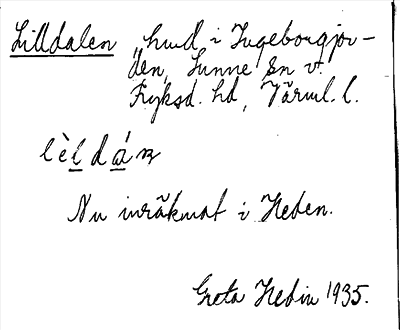 Lilldalen, hmd i Ingeborgjor-
den, Sunne sn v.
Fryksd. hd, Värml. l.
lèldán
Nu inräknat i Heden.
Greta Hedin 1935.